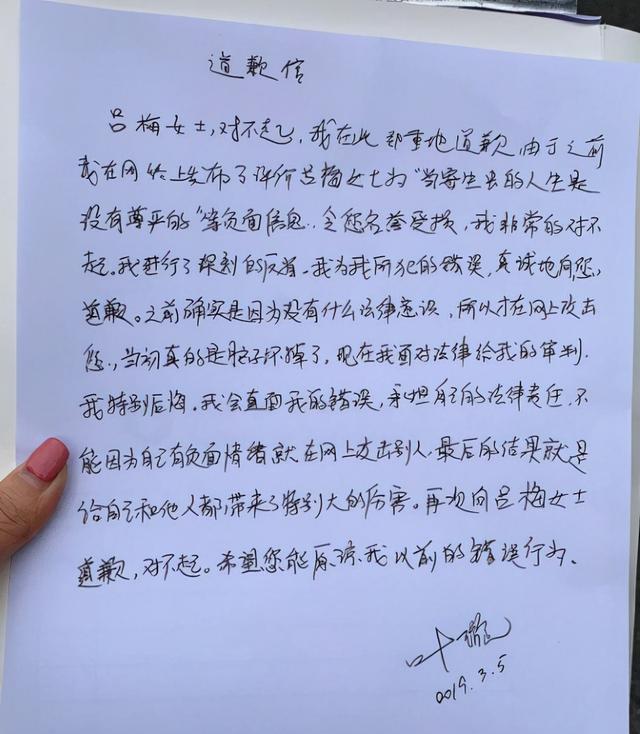 道歉信
吕梅女士，对不起，我在此郑重地道歉，由于之前
我在网络上发布了评价吕梅女士为“当寄生虫的人生是
没有尊严的”等负面信息，令您名誉受损，我非常的对不
起。我进行了深刻的反省。我为我所犯的错误，真诚地向您，
道歉。之前确实是因为没有什么法律意识，所以才在网上攻击
您，当初真的是脑子坏掉了，现在我面对法律给我的审判，
我特别后悔。我会直面我的错误，承担自己的法律责任，不
能因为自己有负面情绪就在网上攻击别人，最后的结果就是
给自己和他人都带来了特别大的伤害。再次向吕梅女士
道歉，对不起。希望您能原谅我以前的错误行为。
叶璇
2019.3.5